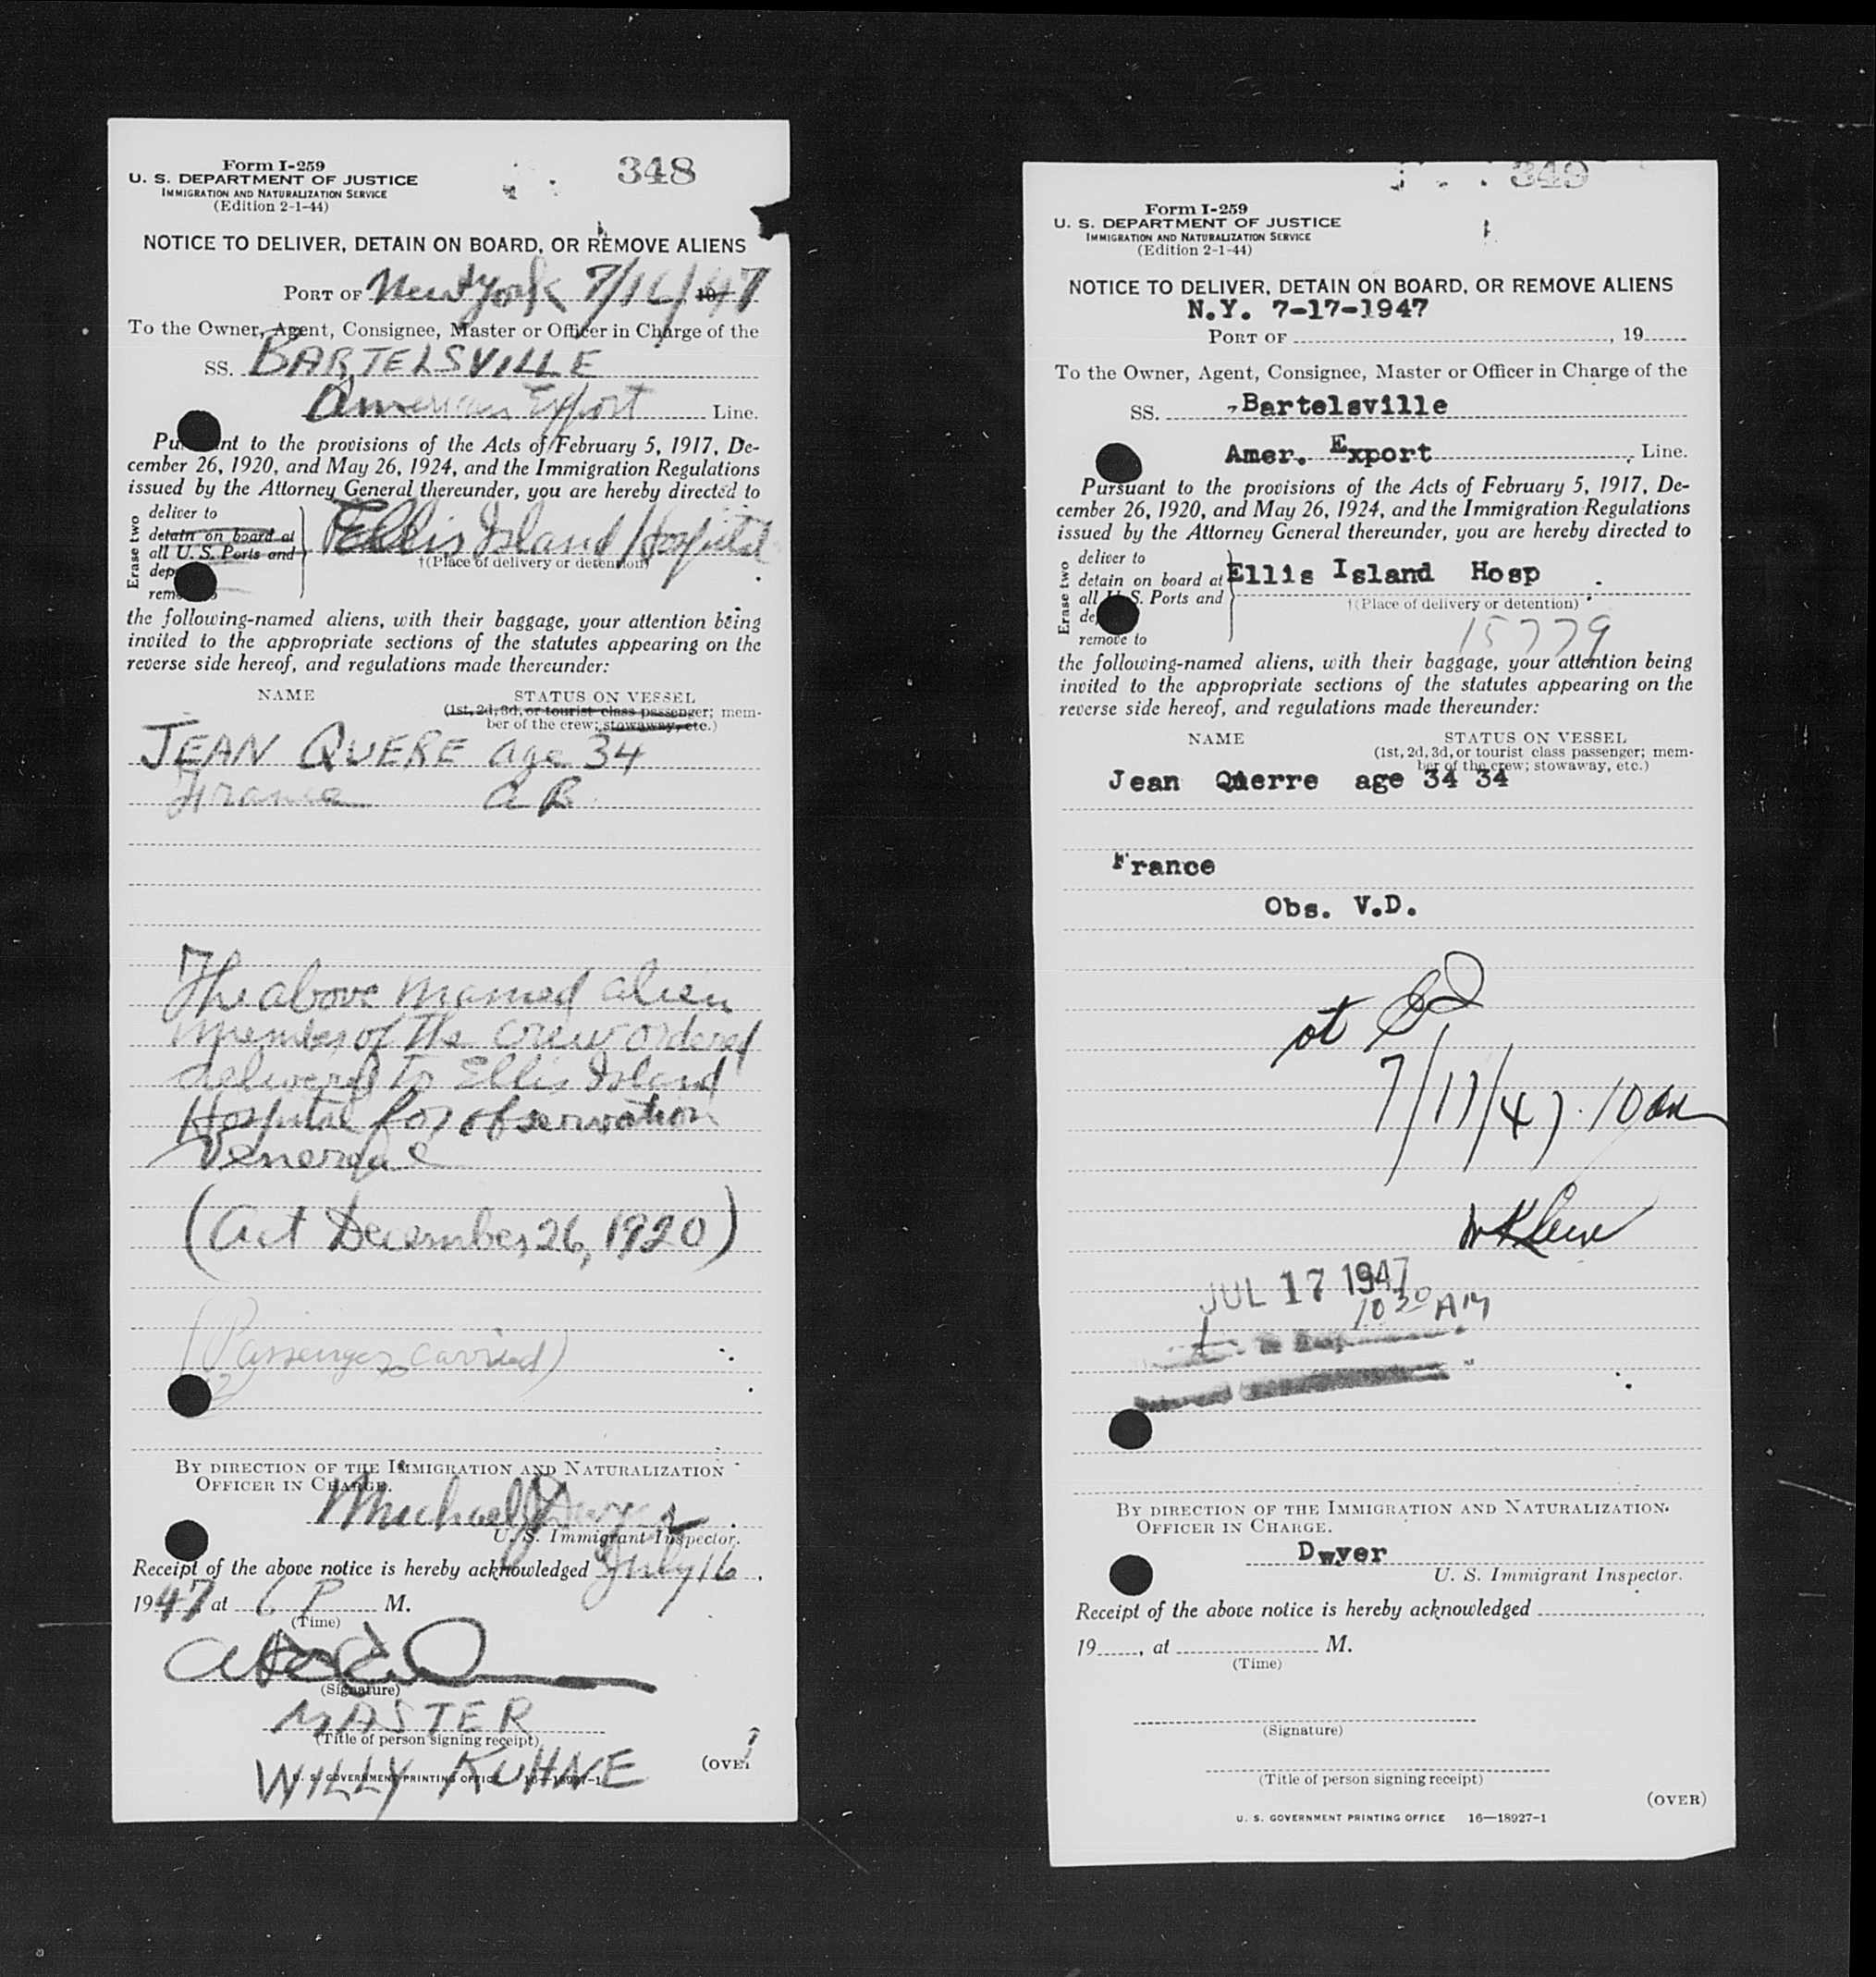 Form I-259
U. S. DEPARTMENT OF JUSTICE
IMMIGRATION AND NATURALIZATION SERVICE
(Edition 2-1-44)
348
NOTICE TO DELIVER, DETAIN ON BOARD, OR REMOVE ALIENS
PORT OF New York 7/16/1947
To the Owner, Agent, Consignee, Master or Officer in Charge of the
SS. BARTELSVILLE
American Export Line.
Pursuant to the provisions of the Acts of February 5, 1917, De-
cember 26, 1920, and May 26, 1924, and the Immigration Regulations
issued by the Attorney General thereunder, you are hereby directed to
Erase two
deliver to
detain on board at
all U. S. Ports and
dep
remo
Ellis Island Hospital
†(Place of delivery or detention)
the following-named aliens, with their baggage, your attention being
invited to the appropriate sections of the statutes appearing on the
reverse side hereof, and regulations made thereunder:
NAME STATUS ON VESSEL
(1st, 2d, 3d, or tourist class passenger; mem-
ber of the crew; stowaway, etc.)
JEAN QUERE age 34
France AB
The above named alien
member of the crew ordered
delivered to Ellis Island
Hospital for observation
Venereal
(Act December 26, 1920)
(Passenger carried)
BY DIRECTION OF THE IMMIGRATION AND NATURALIZATION
OFFICER IN CHARGE.
Michael J Dwyer
U. S. Immigrant Inspector.
Receipt of the above notice is hereby acknowledged July 16,
1947 at 6 P M.
(Time)
(Signature)
MASTER
(Title of person signing receipt)
WILLY KUHNE
U. S. GOVERNMENT PRINTING OFFICE 16—18927-1
(OVER
349
Form I-259
U. S. DEPARTMENT OF JUSTICE
IMMIGRATION AND NATURALIZATION SERVICE
(Edition 2-1-44)
NOTICE TO DELIVER, DETAIN ON BOARD, OR REMOVE ALIENS
N.Y. 7-17-1947
PORT OF , 19
To the Owner, Agent, Consignee, Master or Officer in Charge of the
SS. Bartelsville
Amer. Export Line.
Pursuant to the provisions of the Acts of February 5, 1917, De-
cember 26, 1920, and May 26, 1924, and the Immigration Regulations
issued by the Attorney General thereunder, you are hereby directed to
Erase two
deliver to
detain on board at
all U. S. Ports and
de
remove to
Ellis Island Hosp
†(Place of delivery or detention)
15779
the following-named aliens, with their baggage, your attention being
invited to the appropriate sections of the statutes appearing on the
reverse side hereof, and regulations made thereunder:
NAME STATUS ON VESSEL
(1st, 2d, 3d, or tourist class passenger; mem-
ber of the crew; stowaway, etc.)
Jean Querre age 34 34
France
Obs. V.D.
at
7/17/47. 10 am
JUL 17 1947
10 30 AM
BY DIRECTION OF THE IMMIGRATION AND NATURALIZATION
OFFICER IN CHARGE.
Dwyer
U. S. Immigrant Inspector.
Receipt of the above notice is hereby acknowledged
19 , at M.
(Time)
(Signature)
(Title of person signing receipt)
(OVER)
U. S. GOVERNMENT PRINTING OFFICE 16—18927-1